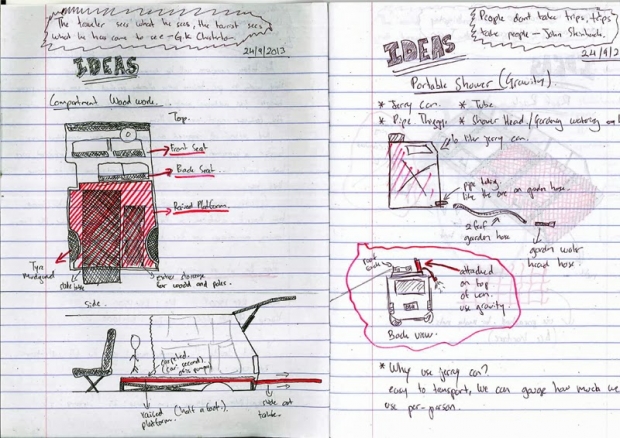 The traveler sees what he sees, the tourist sees
what he has come to see - G.K Chesterton
24/9/2013
IDEAS
Compartment Wood work.
Top.
Front Seat
Back Seat
Raised Platform.
Tyre
for wood and poles.
Side.
raised
platform.
(half a foot).
slide out
table.
People dont take trips, trips
take people - John Steinbeck.
24/9/2
IDEAS
Portable Shower (Gravity).
* Jerry Can. * Tube
* Pipe * Shower Head / Gardening watering
10 liter jerry can.
pipe
like the one on garden hose.
2 feet
garden hose
garden water
head hose.
attached
on top
of van.
use gravity.
Back view.
* Why use jerry can?
easy to transport, We can gauge how much we
use per-person.